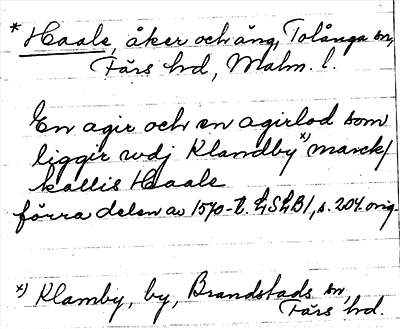 * Haale, åker och äng, Tolånga sn,
Färs hd, Malm. l.
En agir och en agirlod som
liggir wdj Klandby x) marck/
kallis Haale
förra delen av 1570-t. LSLB1, s. 204 orig.
x) Klamby, by, Brandstads sn,
Färs hd.